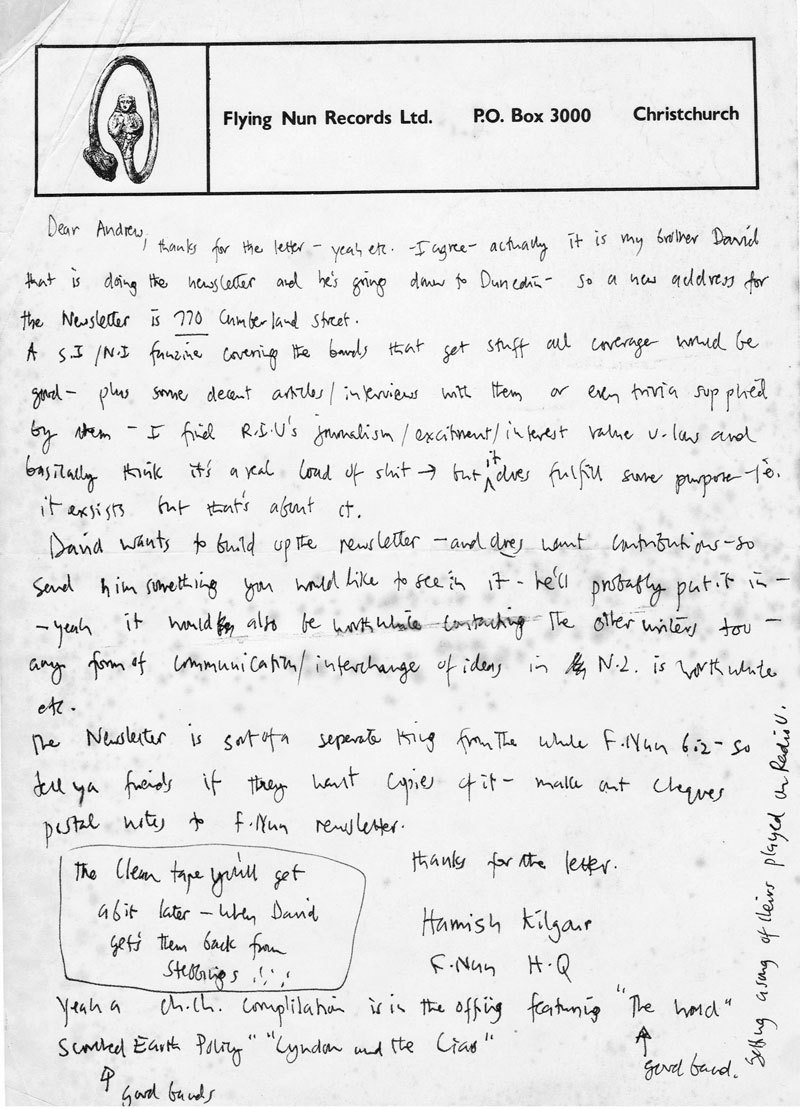 Flying Nun Records Ltd. P.O. Box 3000 Christchurch
Dear Andrew,
thanks for the letter – yeah etc. – I agree – actually it is my brother David
that is doing the newsletter and he's going down to Dunedin – so a new address for
the Newsletter is 770 Cumberland street.
A S.I/N.I fanzine covering the bands that get stuff all coverage would be
good – plus some decent articles/interviews with them or even trivia supplied
by them – I find R.I.U's journalism/excitment/interest value v. low and
basilally think it's a real load of shit → but it does fulfill some purpose – i.e.
it exsists but that's about it.
David wants to build up the newsletter – and does want contributions – so
send him something you would like to see in it – he'll probably put it in –
– yeah it would also be worthwhile contacting the other writers too –
any form of communication/interchange of ideas in N.Z. is worthwhile
etc.
The Newsletter is sort of a separate thing from the whole F.Nun biz – so
tell ya friends if they want copies of it – make out cheques
postal notes to F.Nun newsletter.
The Clean tape you'll get
a bit later – when David
gets them back from
Stebbings !!!
thanks for the letter.
Hamish Kilgour
F.Nun H.Q
Yeah a Ch.Ch. complilation is in the offing featuring "The World"
Scorched Earth Policy" "Lyndon and the Liars"
good bands
good band.
getting a song of theirs played on Radio U.